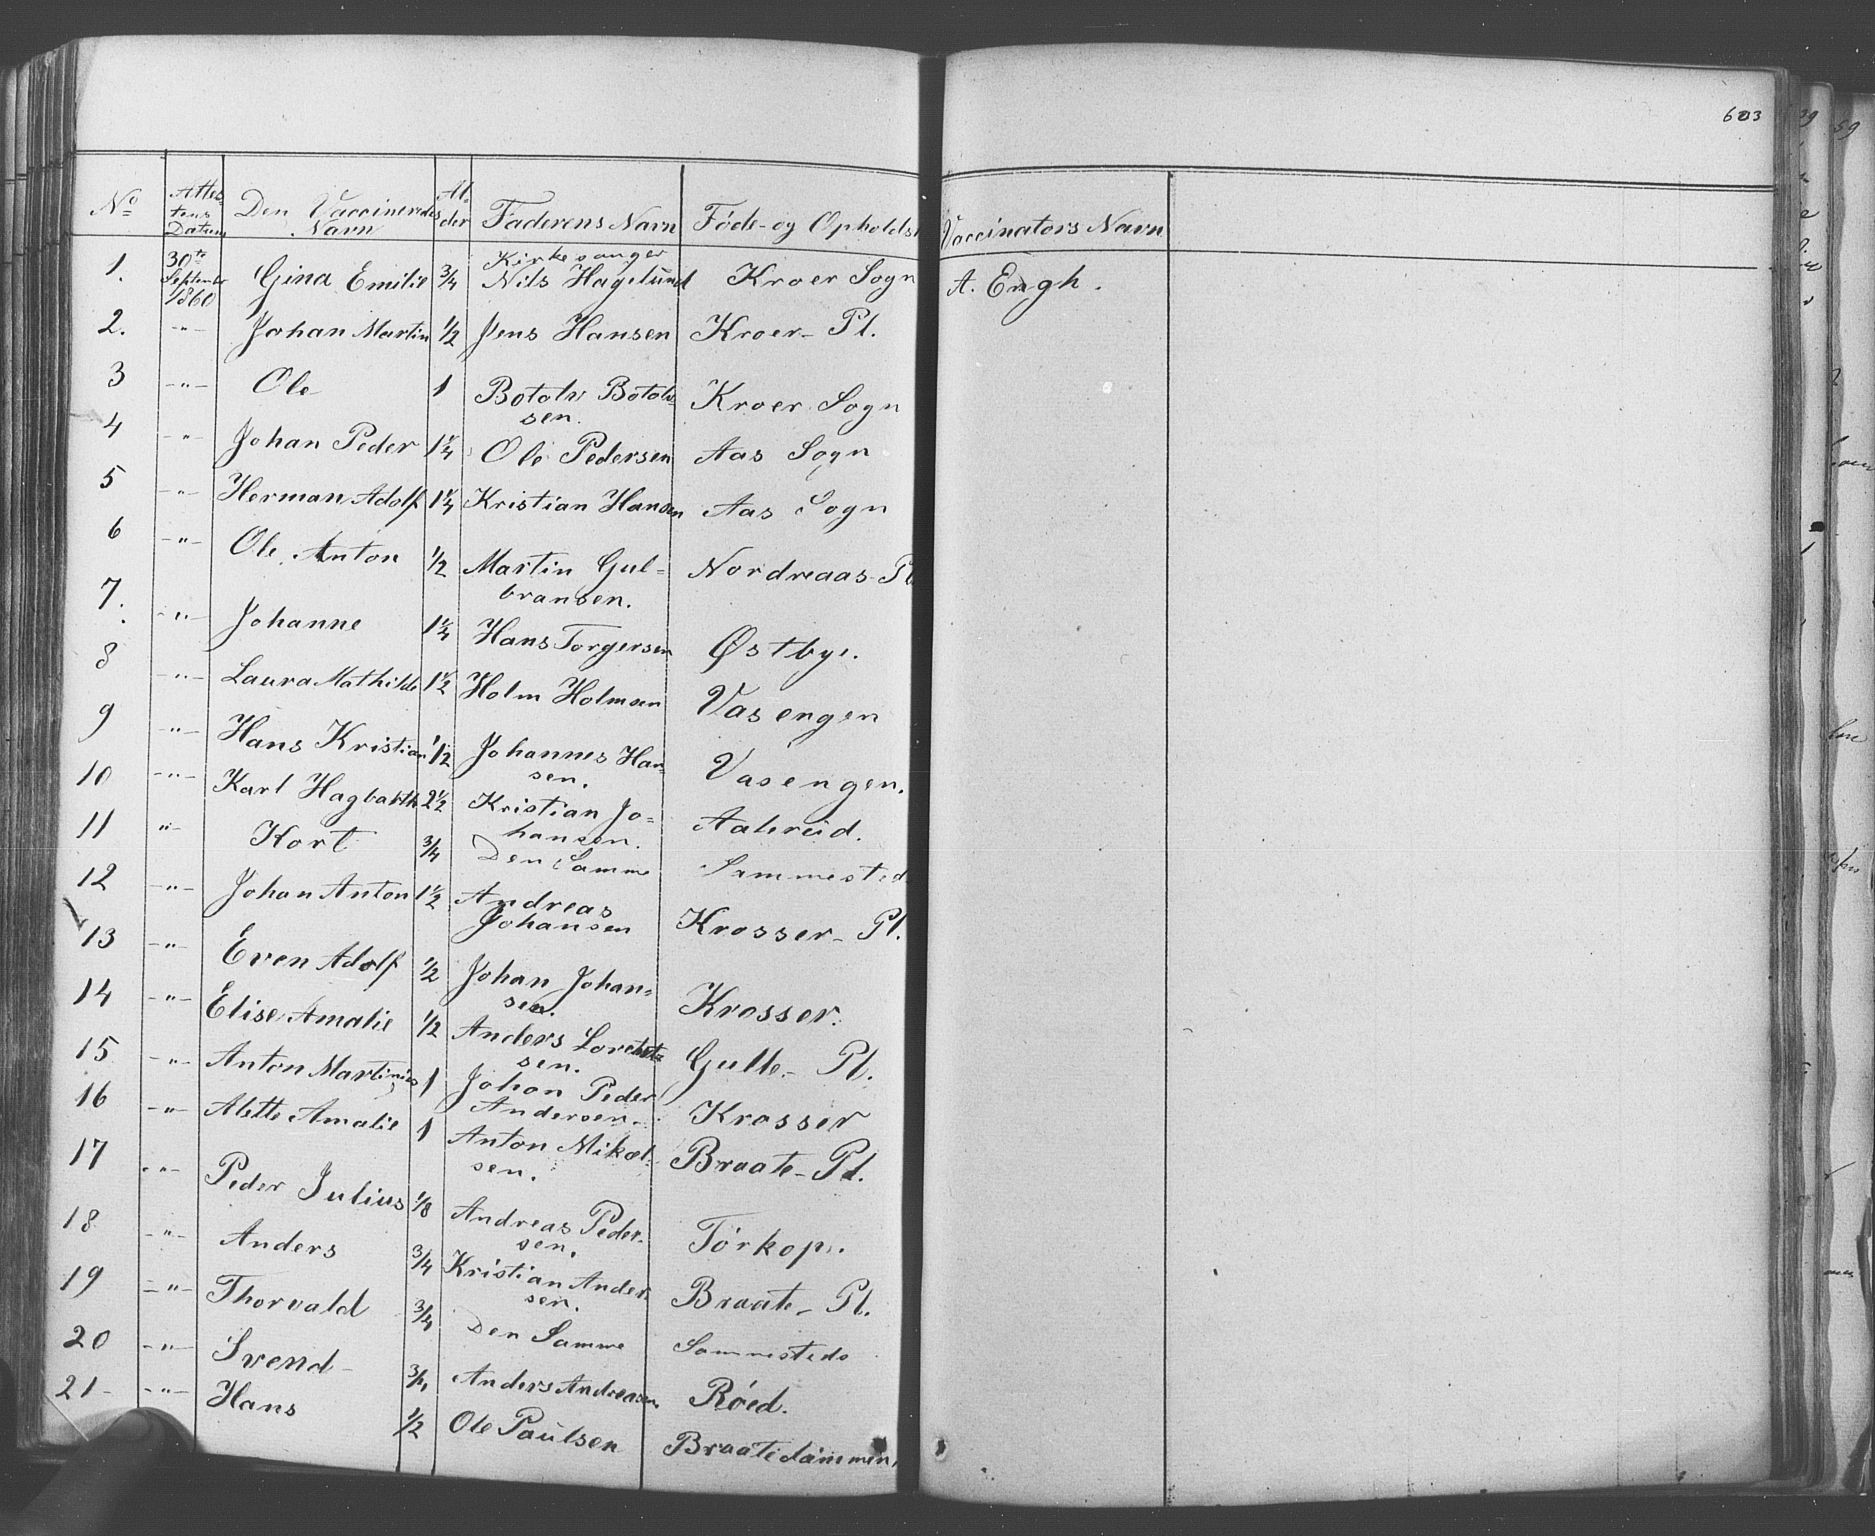 603
No Attestens Datum Den Vaccineredes Navn Alder Faderens Navn Føde- og Opholdst Vaccinators Navn
1. 30te September 1860 Gina Emilie 3/4 Kirkesanger Nils Hagelund Kroer Sogn A. Engh.
2. -"- Johan Martin 1/2 Jens Hansen Kroer- Pl.
3 -"- Ole 1 Botolv Botolv-
sen. Kroer Sogn
4 -"- Johan Peder 1 1/4 Ole Pedersen Aas Sogn
5 -"- Herman Adolf 1 1/4 Kristian Hansen Aas Sogn
6 -"- Ole Anton 1/2 Martin Gul=
bransen. Nordreaas- Pl
7. -"- Johanne 1 1/4 Hans Torgersen Østbye.
8 -"- Laura Mathilde 1 1/2 Holm Holmsen Vasengen
9 -"- Hans Kristian 1/2 Johannes Han=
sen. Vasengen.
10 -"- Karl Hagbarth 2 1/2 Kristian Jo=
hansen. Aalereid.
11 "- Kort 3/4 Den Samme Sammested
12 -"- Johan Anton 1 1/2 Andreas
Johansen Krosser- Pl.
13 -"- Even Adolf 1/2 Johan Johan=
sen. Krosser.
14 -"- Elise Amalie 1/2 Anders Lorents
sen. Gulle- Pl.
15 -"- Anton Martinius 1 Johan Peder
Andersen. Krosser
16 -"- Alette Amalie 1 Anton Mikal-
sen. Braate- Pl.
17 -"- Peder Julius 1/8 Andreas Peder-
sen. Tørkop.
18 -"- Anders 3/4 Kristian Ander
sen. Braate- Pl.
19 -"- Thorvald 3/4 Den Samme Sammesteds
20 -"- Svend 3/4 Anders Andreasen Røed.
21- -"- Hans 1/2 Ole Paulsen Braatedammen.